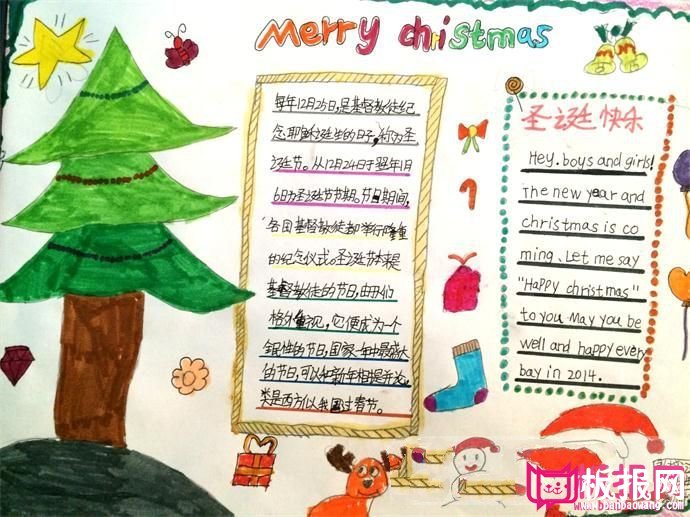 Merry christmas
每年12月25日,是基督教徒纪
念耶稣诞生的日子,称为圣
诞节。从12月24日于翌年1月
6日为圣诞节节期。节日期间,
各国基督教徒都举行隆重
的纪念仪式。圣诞节本来是
基督教徒的节日,由于人们
格外重视,它便成为一个
全民性的节日,国家一年中最盛大
的节日,可以和新年相提并论,
类是西方以我国过春节。
圣诞快乐
Hey. boys and girls!
The new year and
christmas is co
ming. Let me say
"Happy christmas"
to you May you be
well and happy every
bay in 2014.
板报网
www.banbaowang.com